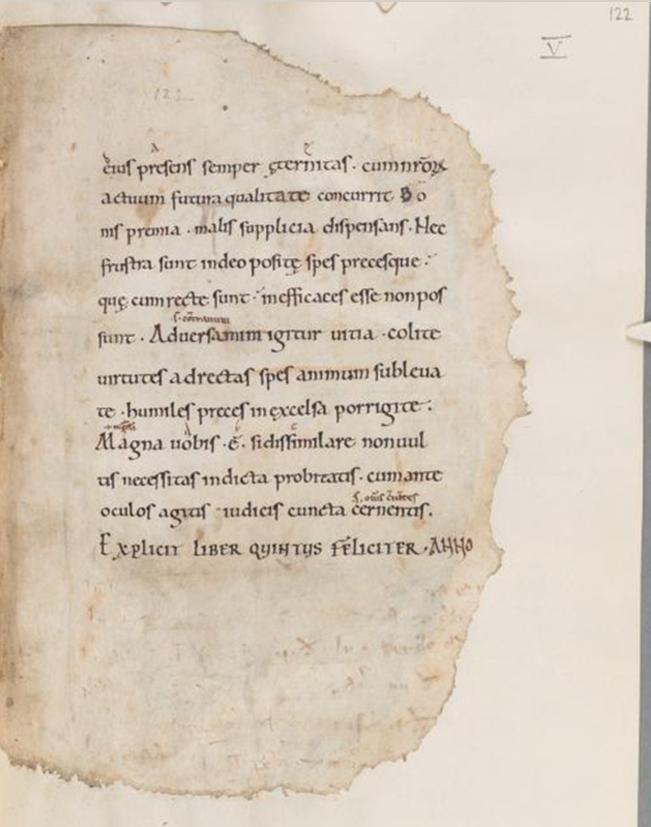 122
V
123
eius presens semper ęternitas · cum nr̄orꝝ
actuum futura qualitate concurrit Bo
nis premia · malis supplicia dispensans · Nec
frustra sunt in deo positę spes precesque ·
quę cum recte sunt · inefficaces esse non pos
sunt · Adversamini igitur vitia · colite
virtutes ad rectas spes animum subleva
te · humiles preces in excelsa porrigite :
Magna vobis · ē · si dissimilare non vul
tis necessitas indicta probitatis · cum ante
oculos agitis · iudicis cuncta cernentis .
EXPLICIT LIBER QUINTUS FELICITER · ANNO